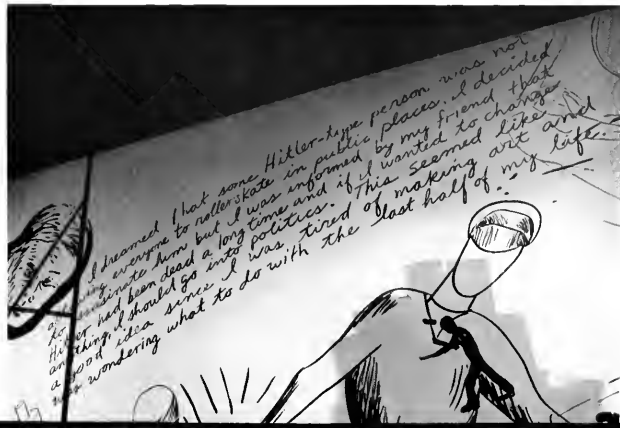 I dreamed that some Hitler-type person was not
allowing everyone to rollerskate in public places. I decided
to assassinate him but I was informed by my friend that
Hitler had been dead a long time and if I wanted to change
anything, I should go into politics. This seemed like
a good idea since I was tired of making art and
was wondering what to do with the last half of my life.